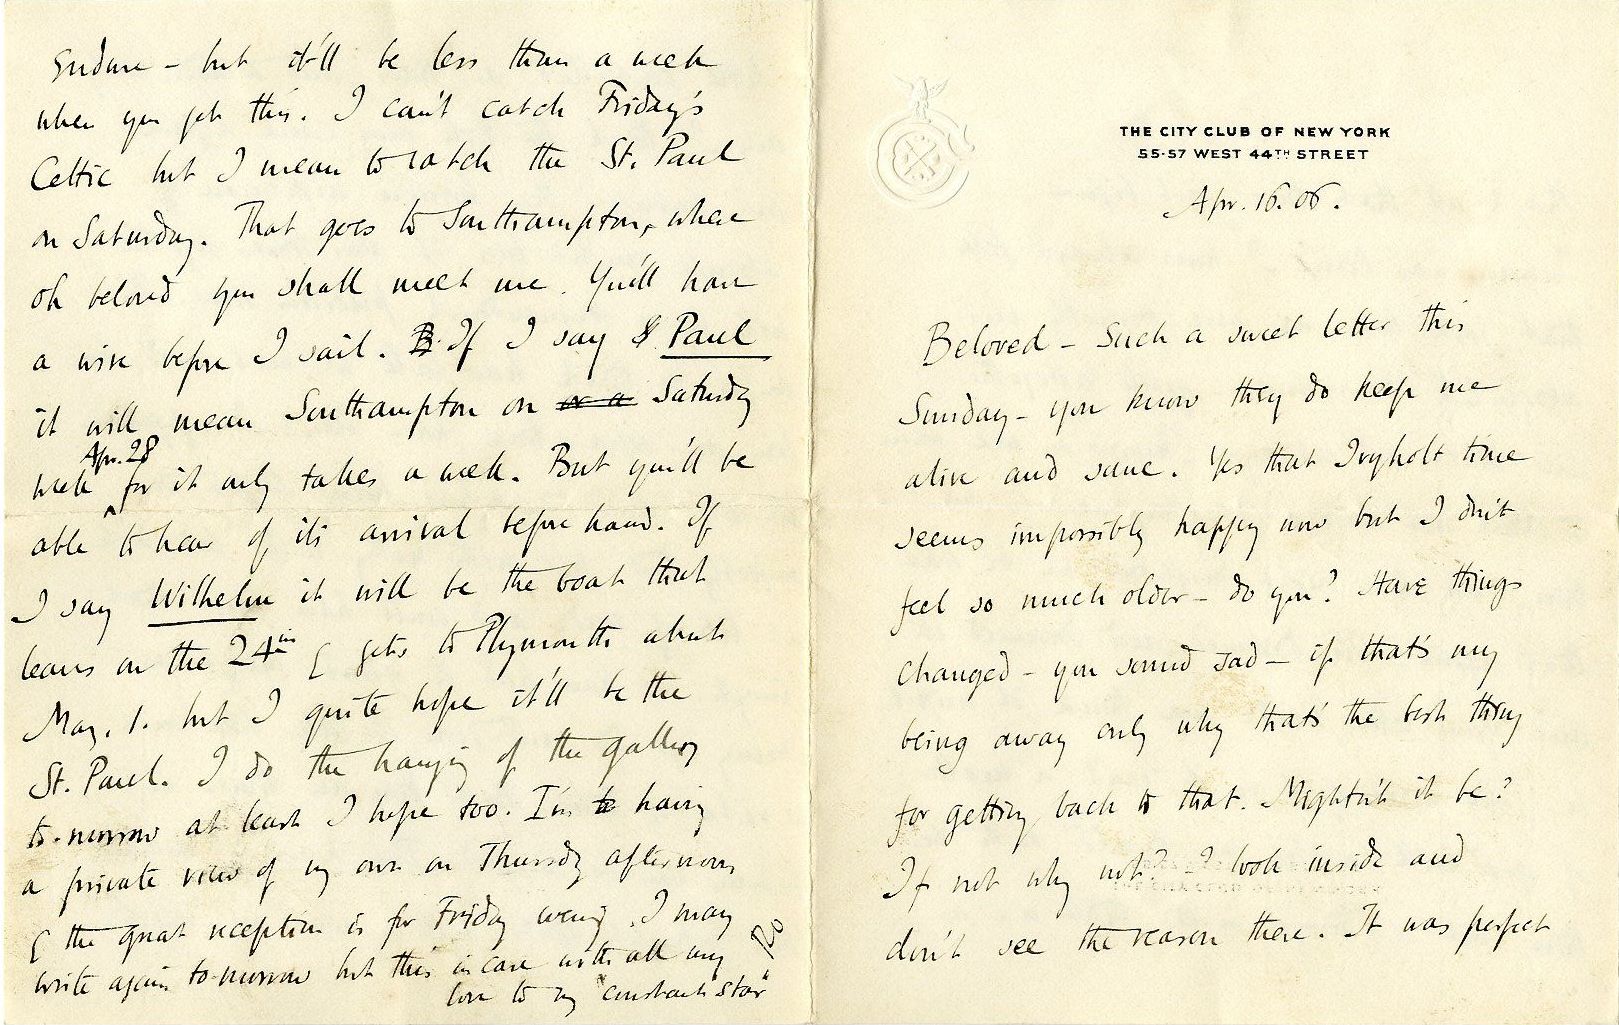 THE CITY CLUB OF NEW YORK
55-57 WEST 44TH STREET
Apr. 16. 06.
Beloved – Such a sweet letter this
Sunday – you know they do keep me
alive and sane. Yes that Ivyholt time
seems impossibly happy now but I don't
feel so much older – do you? Have things
changed – you sound sad – if that's my
being away only why that's the best thing
for getting back to that. Mightn't it be?
If not why not? I look inside and
don't see the reason there. It was perfect
Endure – but it'll be less than a week
when you get this. I can't catch Friday's
Celtic but I mean to catch the St. Paul
on Saturday. That goes to Southampton, where
oh beloved you shall meet me. You'll have
a wire before I sail. If I say Paul
it will mean Southampton on or a Saturday
Apr. 28
week for it only takes a week. But you'll be
able to hear of its arrival before hand. If
I say Wilhelm it will be the boat that
leaves on the 24th & gets to Plymouth about
May. 1. but I quite hope it'll be the
St. Paul. I do the hanging of the gallery
to-morrow at least I hope too. I'm to having
a private view of my own on Thursday afternoon,
& the great reception is for Friday evening. I may
write again to-morrow but this in case with all my
love to my "constant star"